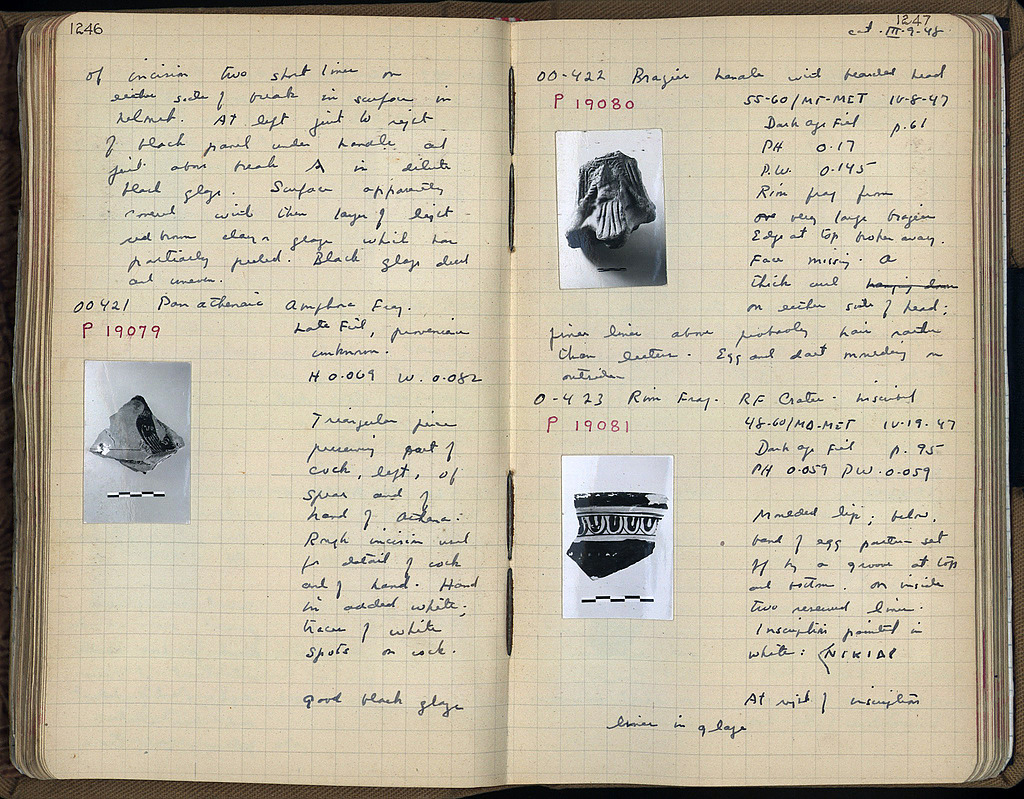 1246
of incision two short lines on
either side of break in surface in
helmet. At left joint to right
of black panel under handle and
just above break A in dilute
black glaze. Surface apparently
covered with thin layer of light
red brown clay glaze which has
partially peeled. Black glaze dull
and uneven.
00421 Panathenaic Amphora Frag.
P 19079
Late Fill, provenience
unknown.
H 0.069 W. 0.082
Triangular piece
preserving part of
cock, left, of
spear and of
hand of Athena.
Rough incision used
for detail of cock
and of hand. Hand
in added white;
traces of white
spots on cock.
Good black glaze
1247
cat. III-9-48
OO-422 Brazier handle with bearded head
P 19080
55-60/MΓ-MET IV-8-47
Dark age Fill p.61
PH 0.17
P.W. 0.145
Rim frag from
very large brazier
Edge at top broken away.
Face missing.
thick curl hanging down
on either side of head;
finer lines above probably hair rather
than leather. Egg and dart moulding on
outside
O-423 Rim Frag. RF Crater - inscribed
P 19081
48-60/MΔ-MET IV-19-47
Dark age Fill p. 95
PH 0.059 PW. 0.059
Moulded lip; below,
band of egg pattern set
off by a groove at top
and bottom. On inside
two reserved lines.
Inscription painted in
white: NIKIAΣ
At right of inscription
lines in glaze